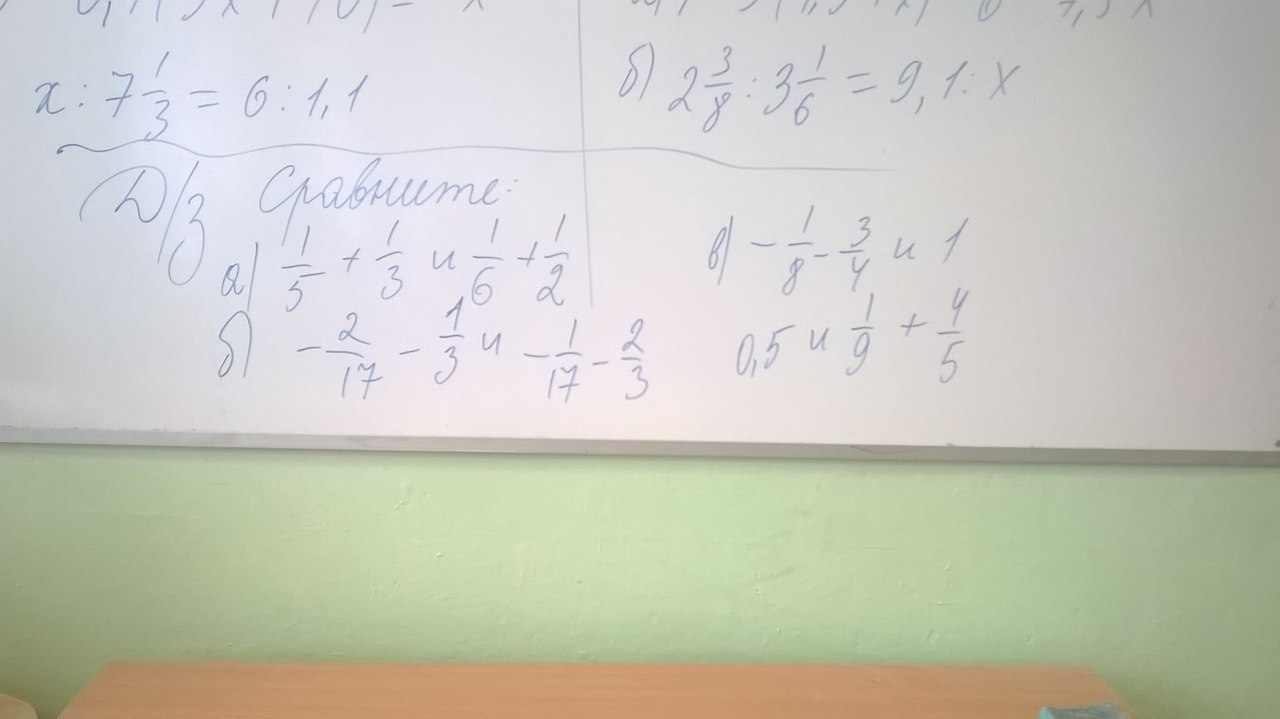 x : 7 1/3 = 6 : 1,1
б) 2 3/8 : 3 1/6 = 9,1 : x
Д/з Сравните:
а) 1/5 + 1/3 и 1/6 + 1/2
б) - 2/17 - 1/3 и - 1/17 - 2/3
в) - 1/8 - 3/4 и 1
0,5 и 1/9 + 4/5